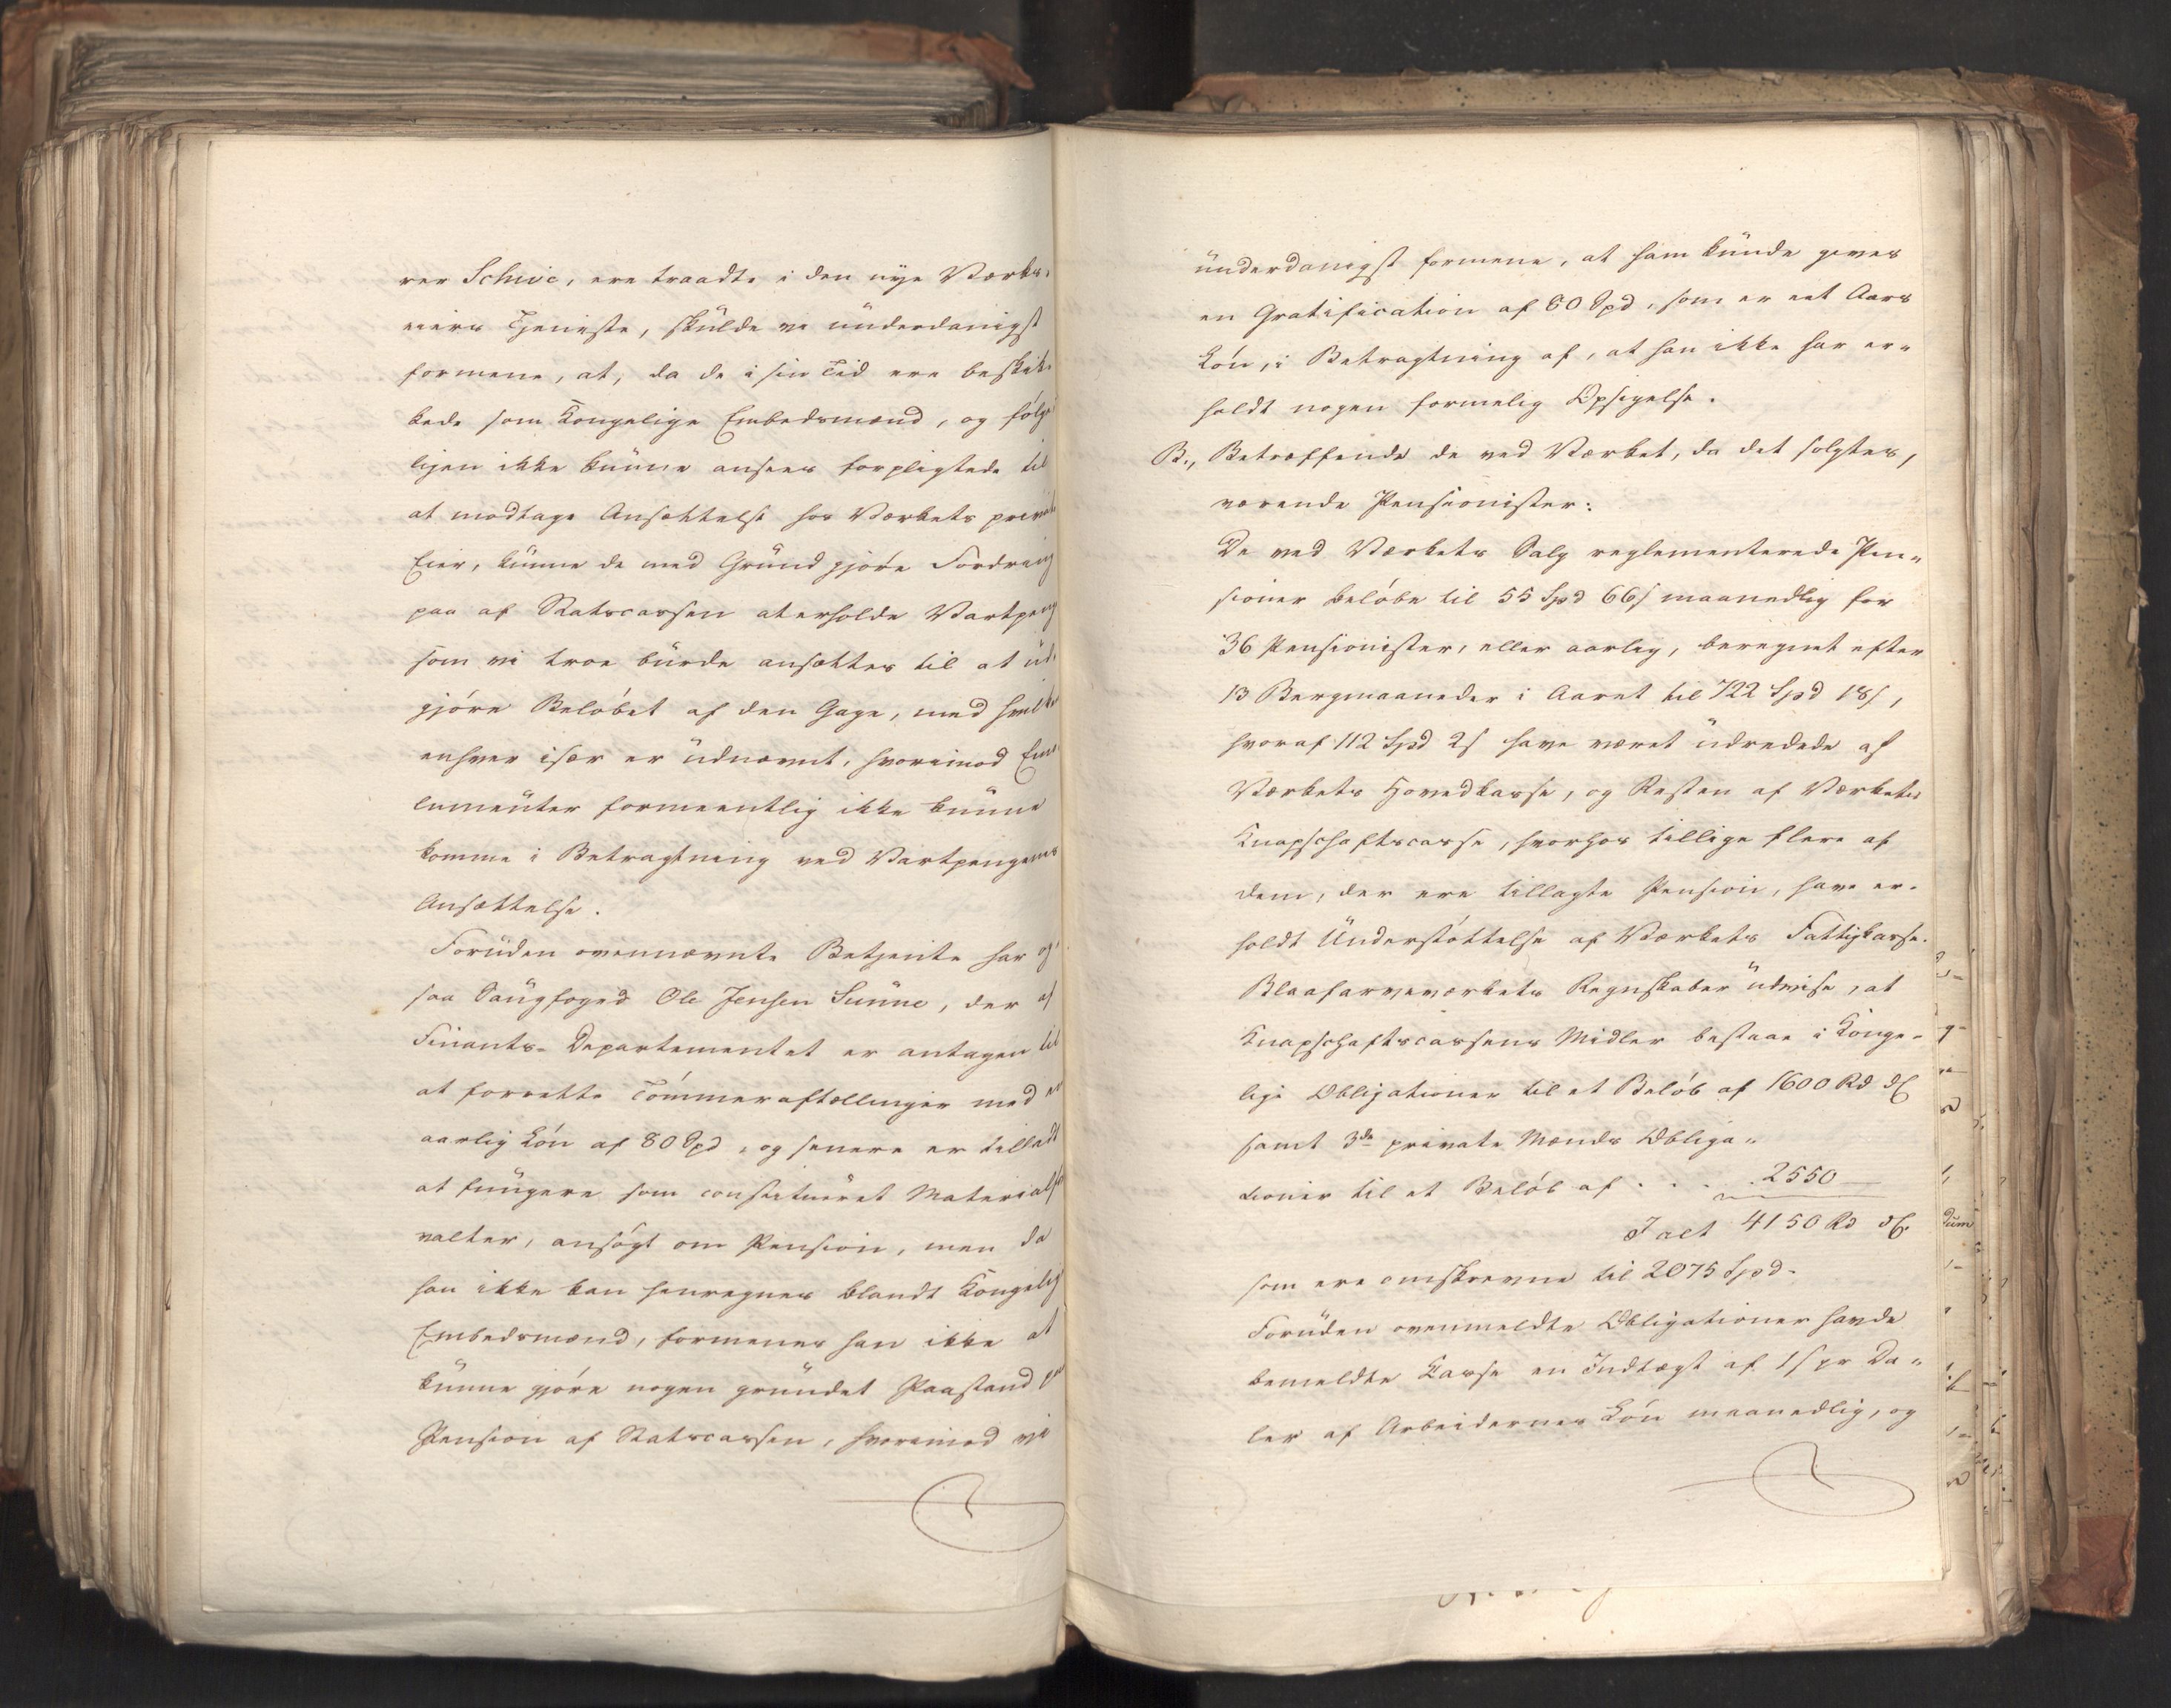 rer Schive, ere traadte i den nye Værks-
eiers Tjeneste, skulde vi underdanigst
formene, at, da de i sin Tid ere beskik-
kede som Kongelige Embedsmænd, og følge
ligen ikke kunne ansees forpligtede til
at modtage Ansættelse hos Værkets private
Eier, kunne de med Grund gjøre Fordring
paa af Statscassen at erholde Vartpeng
som vi troe burde ansættes til at ud-
gjøre Beløbet af den Gage, med hvilke
enhver især er udnævnt, hvorimod Emo
lumenter formeentlig ikke kunne
komme i Betragtning ved Vartpengenes
Ansættelse.
Foruden ovennævnte Betjente har og-
saa Saugfoged Ole Jensen Sunne, der af
Finants-Departementet er antagen til
at forrette Tømmeraftællinger med en
aarlig Løn af 80 Spd, og senere er tilladt
at fungere som constitueret Materialfor
valter, ansøgt om Pension, men da
han ikke kan henregnes blandt Kongelige
Embedsmænd, formenes han ikke at
kunne gjøre nogen grundet Paastand paa
Pension af Statscassen, hvorimod vi
underdanigst formene, at ham kunde gives
en Gratification af 80 Spd, som er eet Aars
Løn, i Betragtning af, at han ikke har er-
holdt nogen formelig Opsigelse.
B., Betræffende de ved Værket, da det solgtes,
værende Pensionister:
De ved Værkets Salg reglementerede Pen-
sioner beløbe til 55 Spd 66 s maanedlig for
36 Pensionister, eller aarlig, beregnet efter
13 Bergmaaneder i Aaret til 722 Spd 18 s,
hvoraf 112 Spd 2 s have været udredede af
Værkets Hovedkasse, og Resten af Værkets
Knapschaftscasse, hvorhos tillige flere af
dem, der ere tillagte Pension, have er-
holdt Understøttelse af Værkets Fattigkasse.
Blaafarveværkets Regnskaber udvise, at
Knapschaftscassens Midler bestaae i Konge-
lige Obligationer til et Beløb af 1600 Rd dC
samt 3de private Mænds Obliga-
tioner til et Beløb af . . . . 2550 —
Facit 4150 Rd dC.
som ere omskrevne til 2075 Spd.
Foruden ovenmeldte Obligationer havde
bemeldte Kasse en Indtægt af 1 s pr Da-
ler af Arbeidernes Løn maanedlig, og